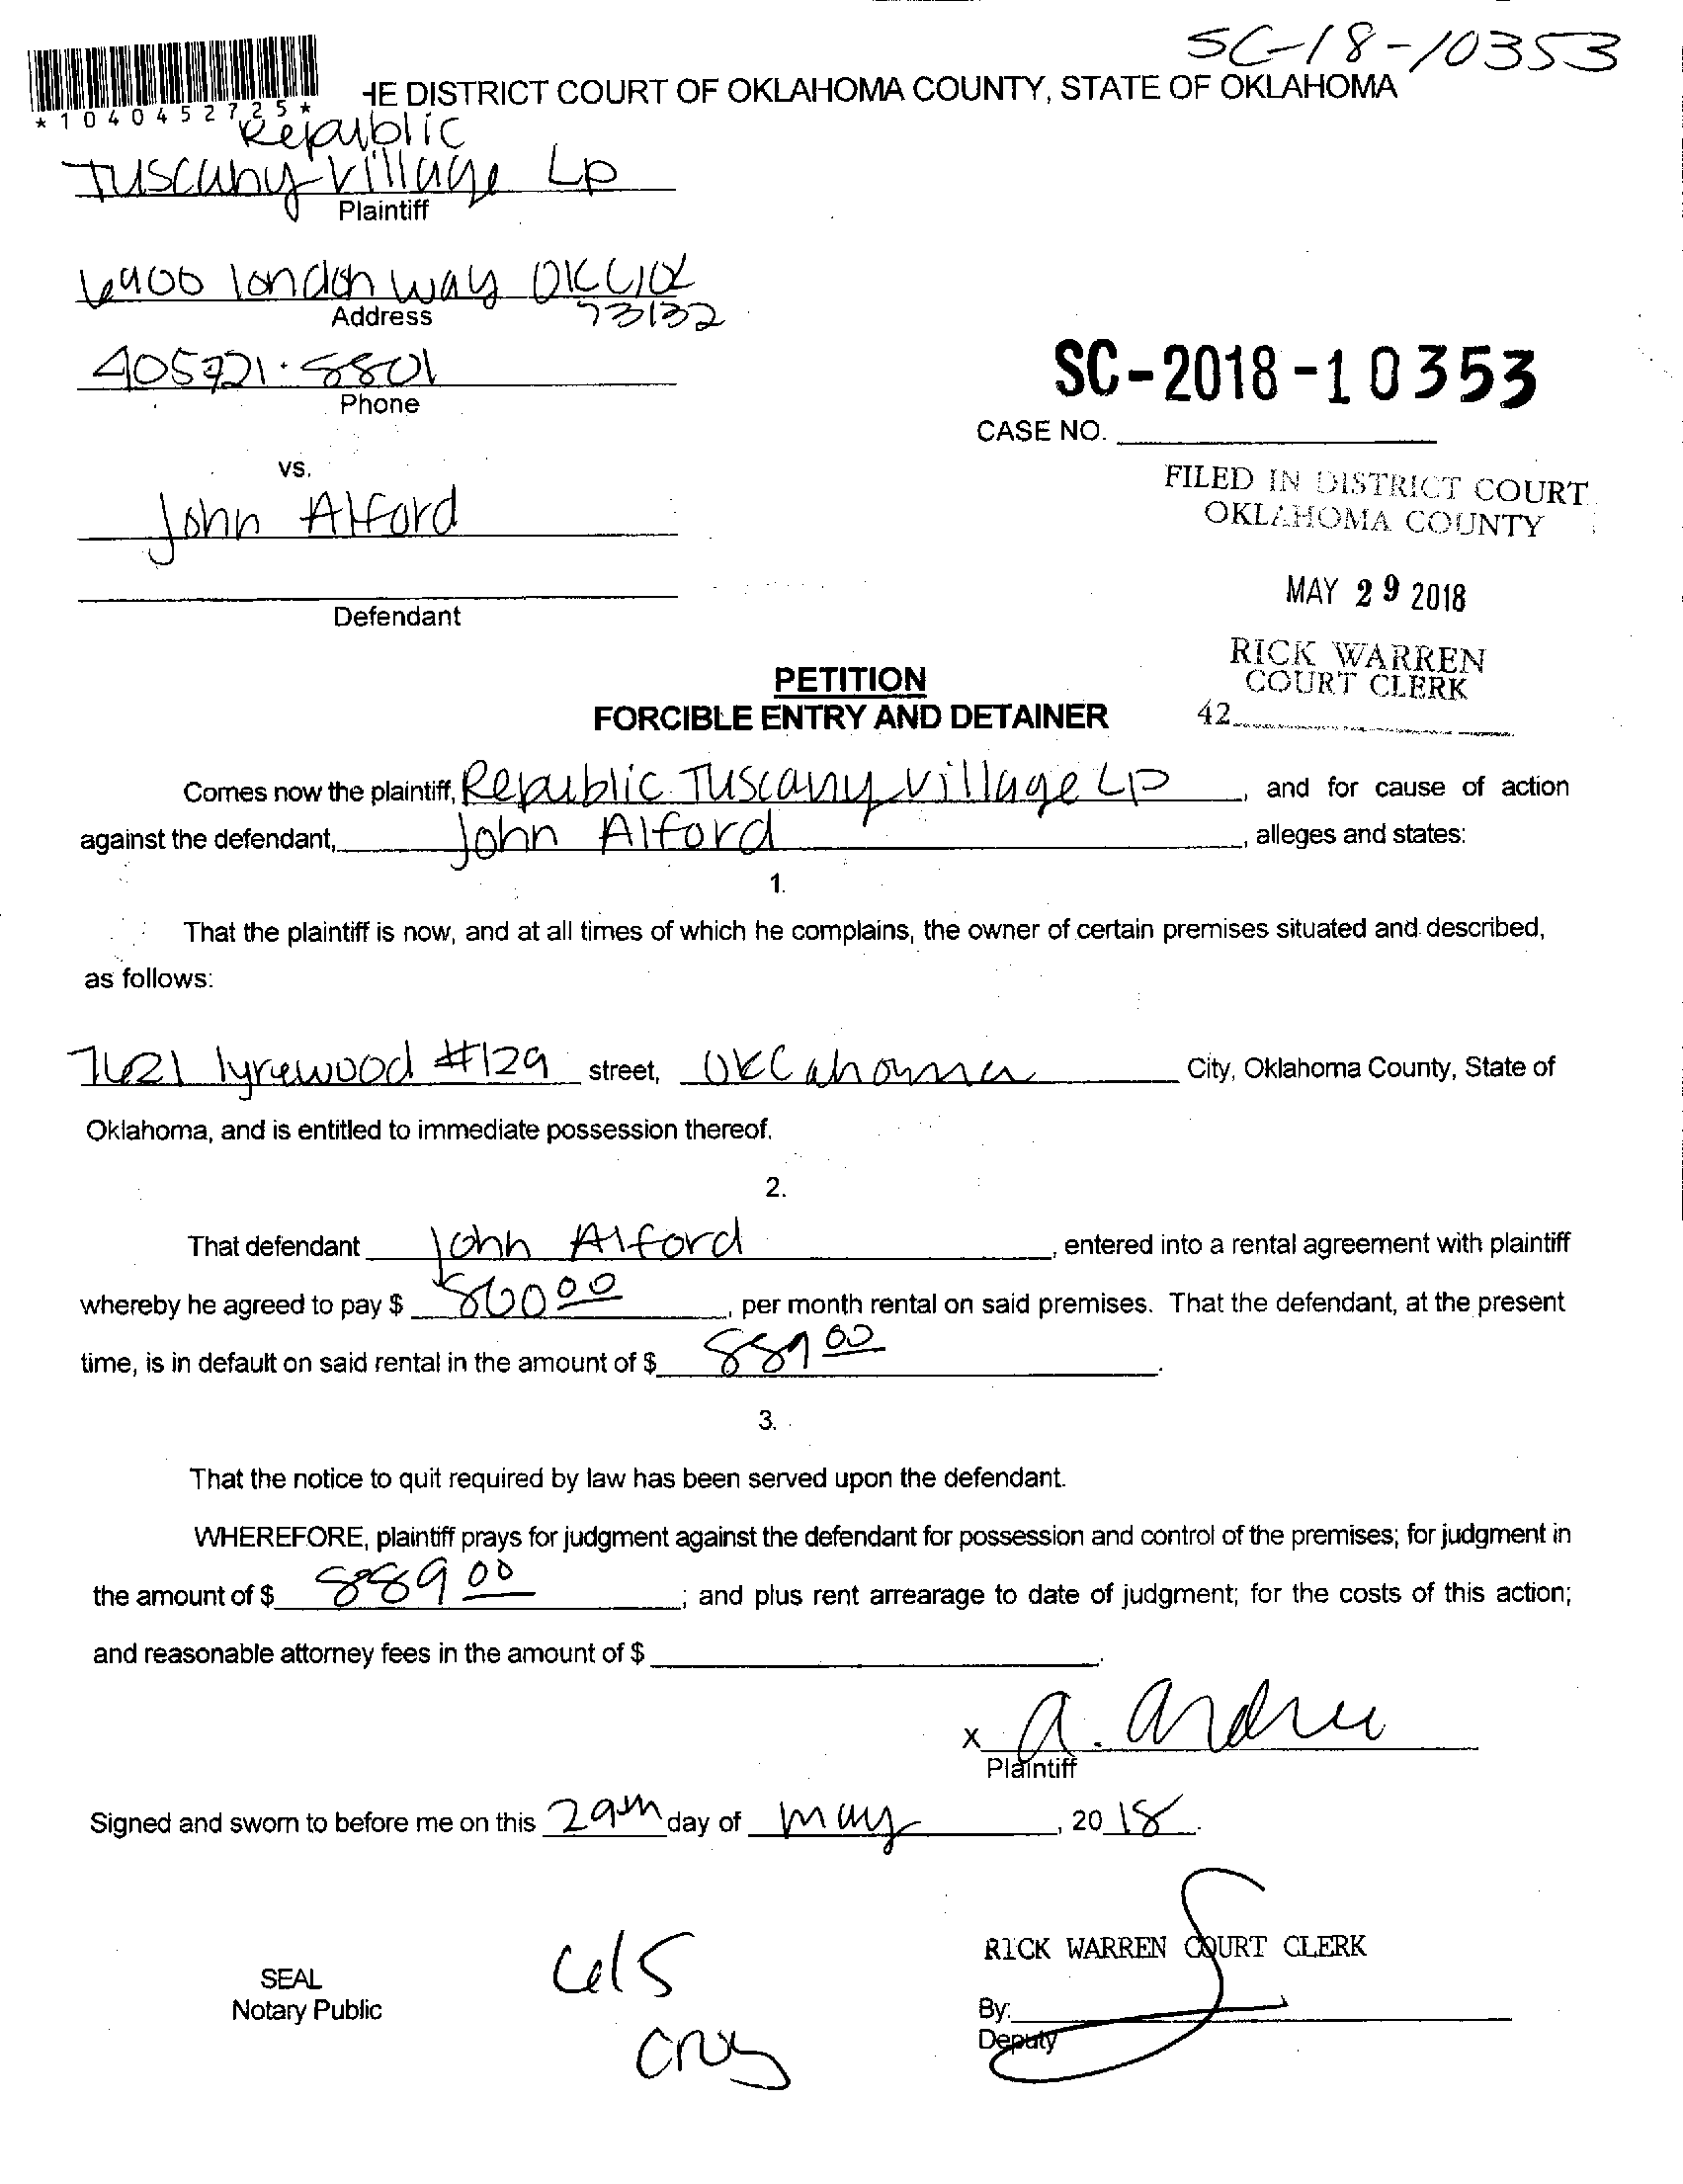 SC-18-10353
HE DISTRICT COURT OF OKLAHOMA COUNTY, STATE OF OKLAHOMA
*1040452725*
Republic
Tuscany Village LP
Plaintiff
6900 london way OKC, OK
Address 73132
405 721-8801
Phone
SC-2018-10353
CASE NO.
vs.
FILED IN DISTRICT COURT
OKLAHOMA COUNTY
John Alford
MAY 29 2018
Defendant
RICK WARREN
COURT CLERK
42
PETITION
FORCIBLE ENTRY AND DETAINER
Comes now the plaintiff, Republic Tuscany Village LP, and for cause of action
against the defendant, John Alford, alleges and states:
1.
That the plaintiff is now, and at all times of which he complains, the owner of certain premises situated and described,
as follows:
7621 lyrewood #129 street, Oklahoma City, Oklahoma County, State of
Oklahoma, and is entitled to immediate possession thereof.
2.
That defendant John Alford, entered into a rental agreement with plaintiff
whereby he agreed to pay $ 800 00, per month rental on said premises. That the defendant, at the present
time, is in default on said rental in the amount of $ 889 00.
3.
That the notice to quit required by law has been served upon the defendant.
WHEREFORE, plaintiff prays for judgment against the defendant for possession and control of the premises; for judgment in
the amount of $ 889 00; and plus rent arrearage to date of judgment; for the costs of this action;
and reasonable attorney fees in the amount of $ .
x A. Andru
Plaintiff
Signed and sworn to before me on this 29th day of may, 20 18.
RICK WARREN COURT CLERK
SEAL
Notary Public
By:
Deputy